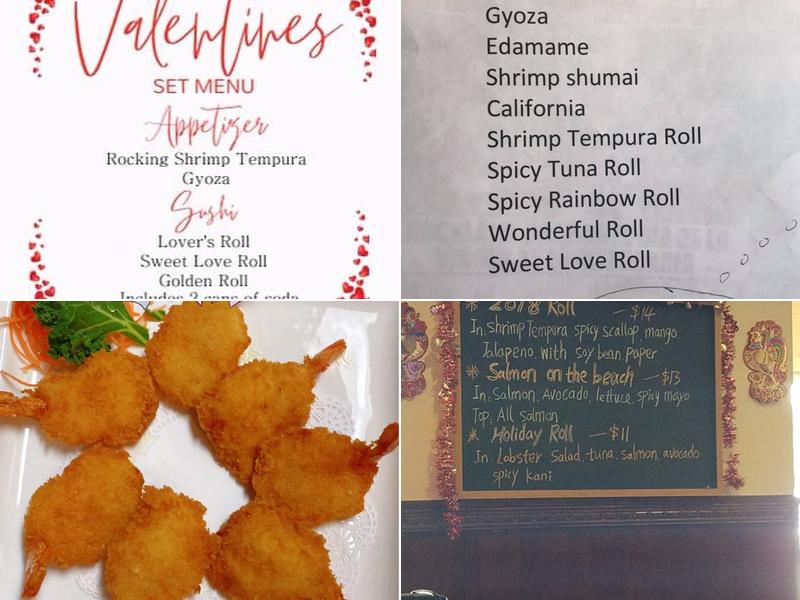 Valentines
SET MENU
Appetizer
Rocking Shrimp Tempura
Gyoza
Sushi
Lover's Roll
Sweet Love Roll
Golden Roll
Includes 2 cans of soda
Gyoza
Edamame
Shrimp shumai
California
Shrimp Tempura Roll
Spicy Tuna Roll
Spicy Rainbow Roll
Wonderful Roll
Sweet Love Roll
* 2018 Roll — $14
In. Shrimp Tempura spicy scallop, mango,
Jalapeno, with soy bean paper
* Salmon on the beach — $13
In. Salmon, Avocado, lettuce, spicy mayo
Top. All salmon
* Holiday Roll — $11
In. Lobster Salad, tuna, salmon, avocado
spicy kani